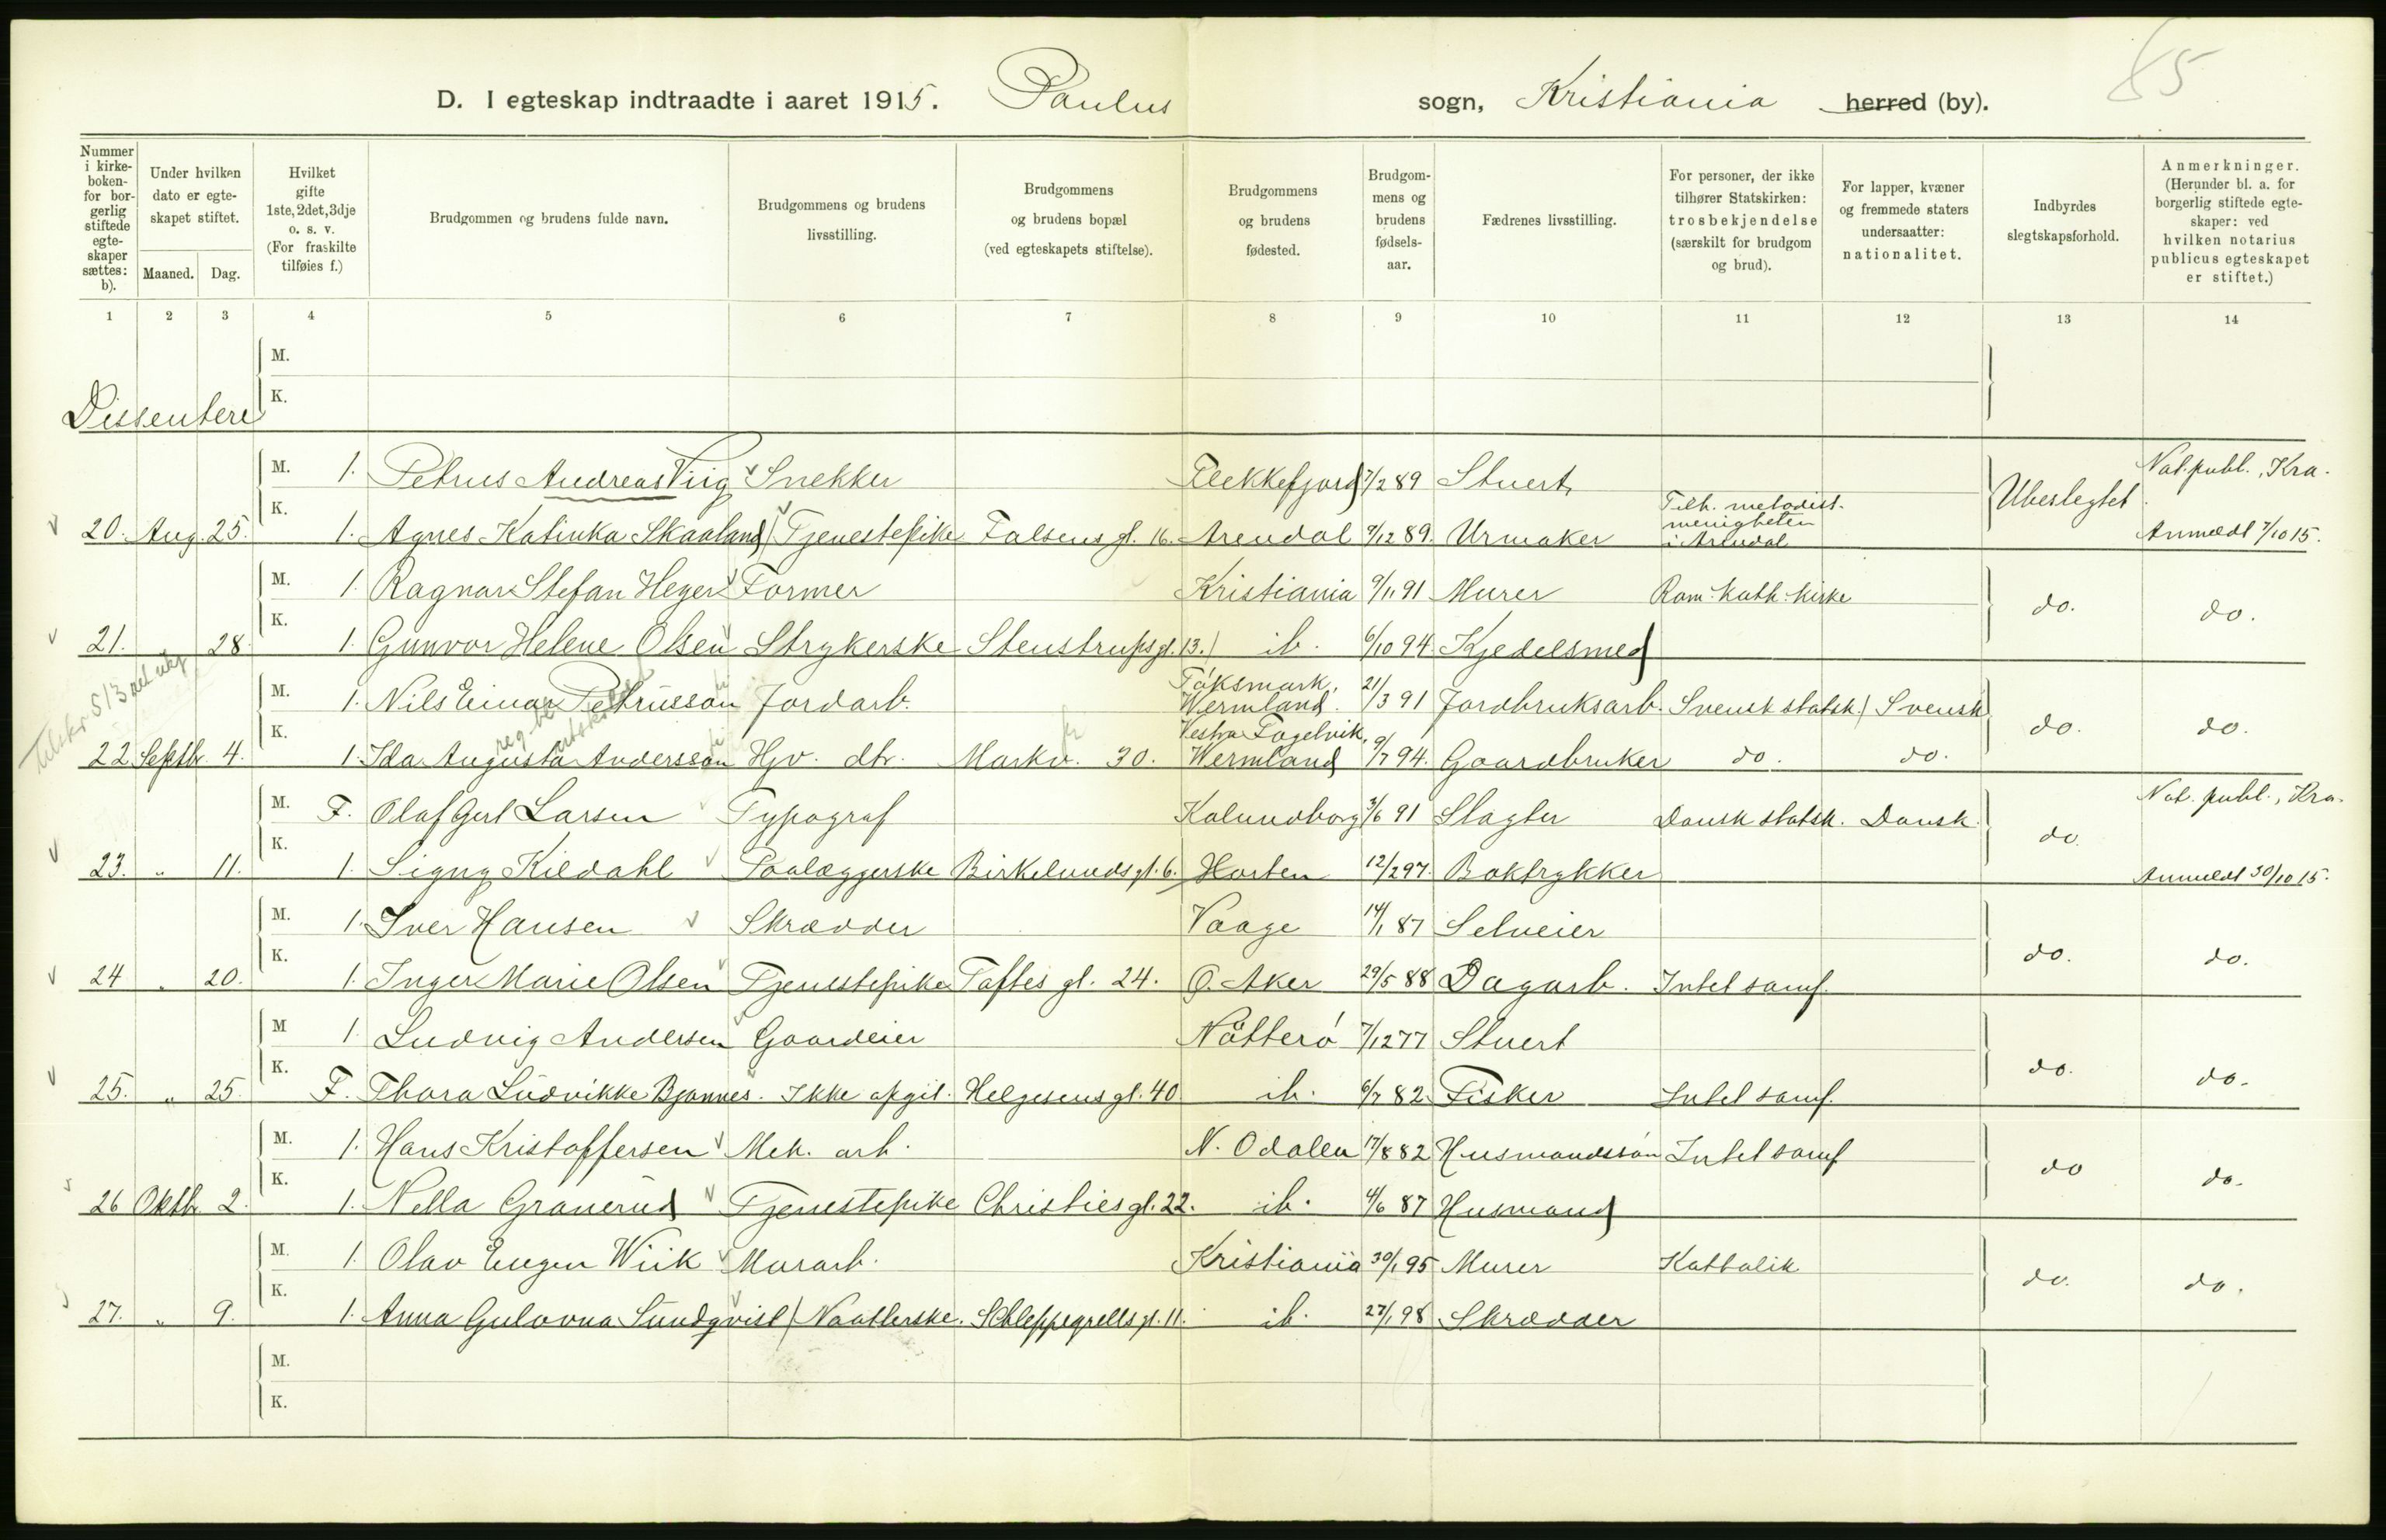 85
D. I egteskap indtraadte i aaret 1915. Paulus sogn, Kristiania herred (by).
Nummer i kirke-boken- for bor-gerlig stiftede egte-skaper sættes: b).
Under hvilken dato er egte-skapet stiftet.
Maaned. Dag.
Hvilket gifte 1ste, 2det, 3dje o. s. v. (For fraskilte tilføies f.)
Brudgommen og brudens fulde navn.
Brudgommens og brudens livsstilling.
Brudgommens og brudens bopæl (ved egteskapets stiftelse).
Brudgommens og brudens fødested.
Brudgom-mens og brudens fødsels-aar.
Fædrenes livsstilling.
For personer, der ikke tilhører Statskirken: trosbekjendelse (særskilt for brudgom og brud).
For lapper, kvæner og fremmede staters undersaatter: nationalitet.
Indbyrdes slegtskapsforhold.
Anmerkninger. (Herunder bl. a. for borgerlig stiftede egte-skaper: ved hvilken notarius publicus egteskapet er stiftet.)
1 2 3 4 5 6 7 8 9 10 11 12 13 14
M.
K.
Dissentere
M. 1. Petrus Andreas Viig Snekker Flekkefjord 7/2 89 Stuert Ubeslegtet Not. publ., Kra.
K. 20. Aug. 25. 1. Agnes Katinka Skaaland Tjenestepike Falsens gt. 16. Arendal 9/12 89. Urmaker Tilh. metodist. menigheten i Arendal Anmeldt 7/10 15.
M. 1. Ragnar Stefan Heyer Former Kristiania 9/1 91 Murer Rom. kath. kirke do. do.
K. 21. 28. 1. Gunvor Helene Olsen Strykerske Stenstrups gt. 13. ib. 6/10 94. Kjedelsmed
M. 1. Nils Einar Petrusson Jordarb. Töksmark, Wermland. 21/3 91 Jordbruksarb. Svensk statsk. Svensk do. do.
K. 22 Septbr. 4. 1. Ida Augusta Andersson Hjv. dtr. Markv. 30. Vestra Fogelvik, Wermland 9/7 94. Gaardbruker do. do.
M. F. Olaf Gert Larsen Typograf Kalundborg 3/6 91 Slagter Dansk statsk. Dansk. do. Not. publ., Kra.
K. 23. " 11. 1. Signy Kildahl Paalæggerske Birkelunds gt. 6. Horten 12/2 97. Boktrykker Anmeldt 30/10 15.
M. 1. Iver Hansen Skrædder Vaage 14/1 87 Selveier do. do.
K. 24 " 20. 1. Inger Marie Olsen Tjenestepike Toftes gt. 24. Ø. Aker 29/5 88 Dagarb. Intet samf.
M 1. Ludvig Andersen Gaardeier Nötterö 7/12 77 Stuert do. do.
K. 25. " 25. F. Thora Ludvikke Bjønnes. Ikke opgit. Helgesens gt. 40. ib. 6/7 82. Fisker Intet samf.
M. 1. Hans Kristoffersen Mek. arb. N. Odalen 17/8 82 Husmandssøn Intet samf do do.
K. 26 Oktbr. 2. 1. Nella Granerud Tjenestepike Christies gt. 22. ib. 4/6 87 Husmand
M. 1. Olav Eugen Wiik Murarb. Kristiania 30/1 95 Murer Katholik do. do.
K. 27. " 9. 1. Anna Gulovna Sundqvist Naatlerske. Schleppegrells gt. 11. ib. 27/1 98 Skrædder
M.
K.